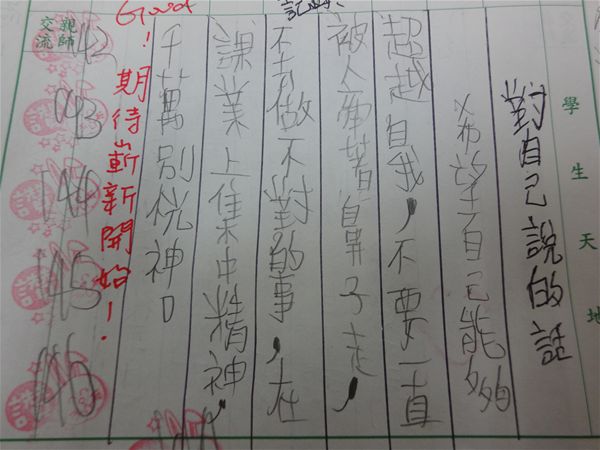 學生天地
對自己說的話
希望自己能夠
超越自我，不要一直
被人牽著鼻子走，
不去做不對的事，在
課業上集中精神，
千萬別恍神。
Good！期待嶄新開始！
親師
交流
142
143
144
145
146